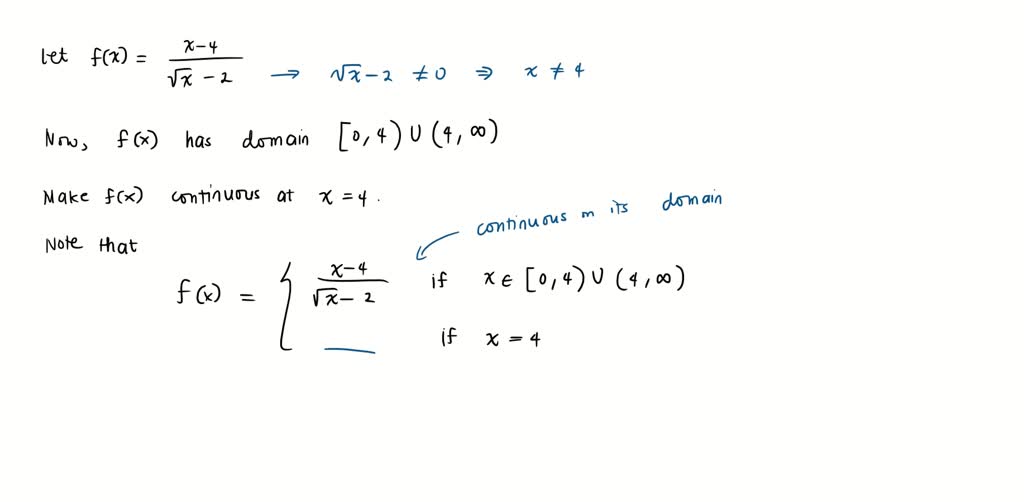 Let f(x) = x-4 / √x - 2 → √x - 2 ≠ 0 ⇒ x ≠ 4
Now, f(x) has domain [0,4) ∪ (4,∞)
Make f(x) continuous at x = 4.
continuous on its domain
Note that
f(x) = { x-4 / √x - 2 if x ∈ [0,4) ∪ (4,∞)
___ if x = 4